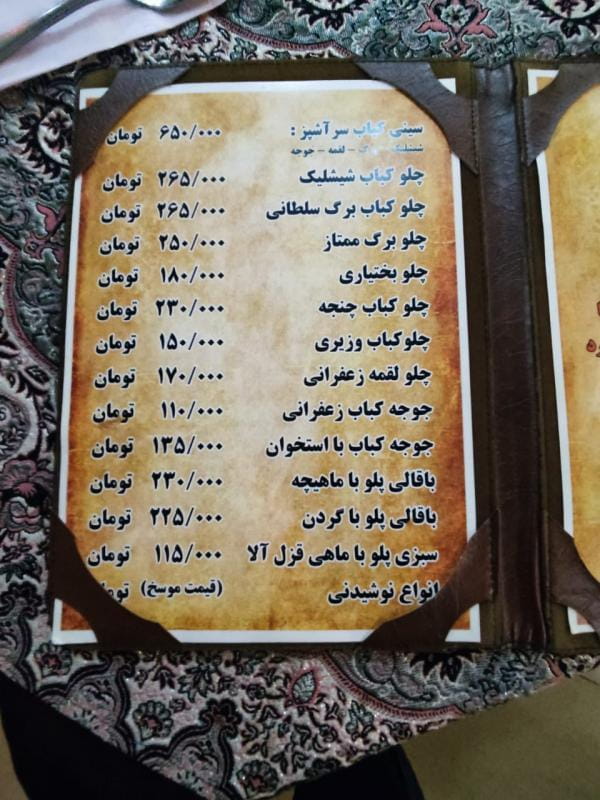 سینی کباب سرآشپز : ۶۵۰/۰۰۰ تومان
شیشلیک - برگ - لقمه - جوجه
چلو کباب شیشلیک ۲۶۵/۰۰۰ تومان
چلو کباب برگ سلطانی ۲۶۵/۰۰۰ تومان
چلو برگ ممتاز ۲۵۰/۰۰۰ تومان
چلو بختیاری ۱۸۰/۰۰۰ تومان
چلو کباب چنجه ۲۳۰/۰۰۰ تومان
چلوکباب وزیری ۱۵۰/۰۰۰ تومان
چلو لقمه زعفرانی ۱۷۰/۰۰۰ تومان
جوجه کباب زعفرانی ۱۱۰/۰۰۰ تومان
جوجه کباب با استخوان ۱۳۵/۰۰۰ تومان
باقالی پلو با ماهیچه ۲۳۰/۰۰۰ تومان
باقالی پلو با گردن ۲۲۵/۰۰۰ تومان
سبزی پلو با ماهی قزل آلا ۱۱۵/۰۰۰ تومان
انواع نوشیدنی (قیمت موسخ) تومان